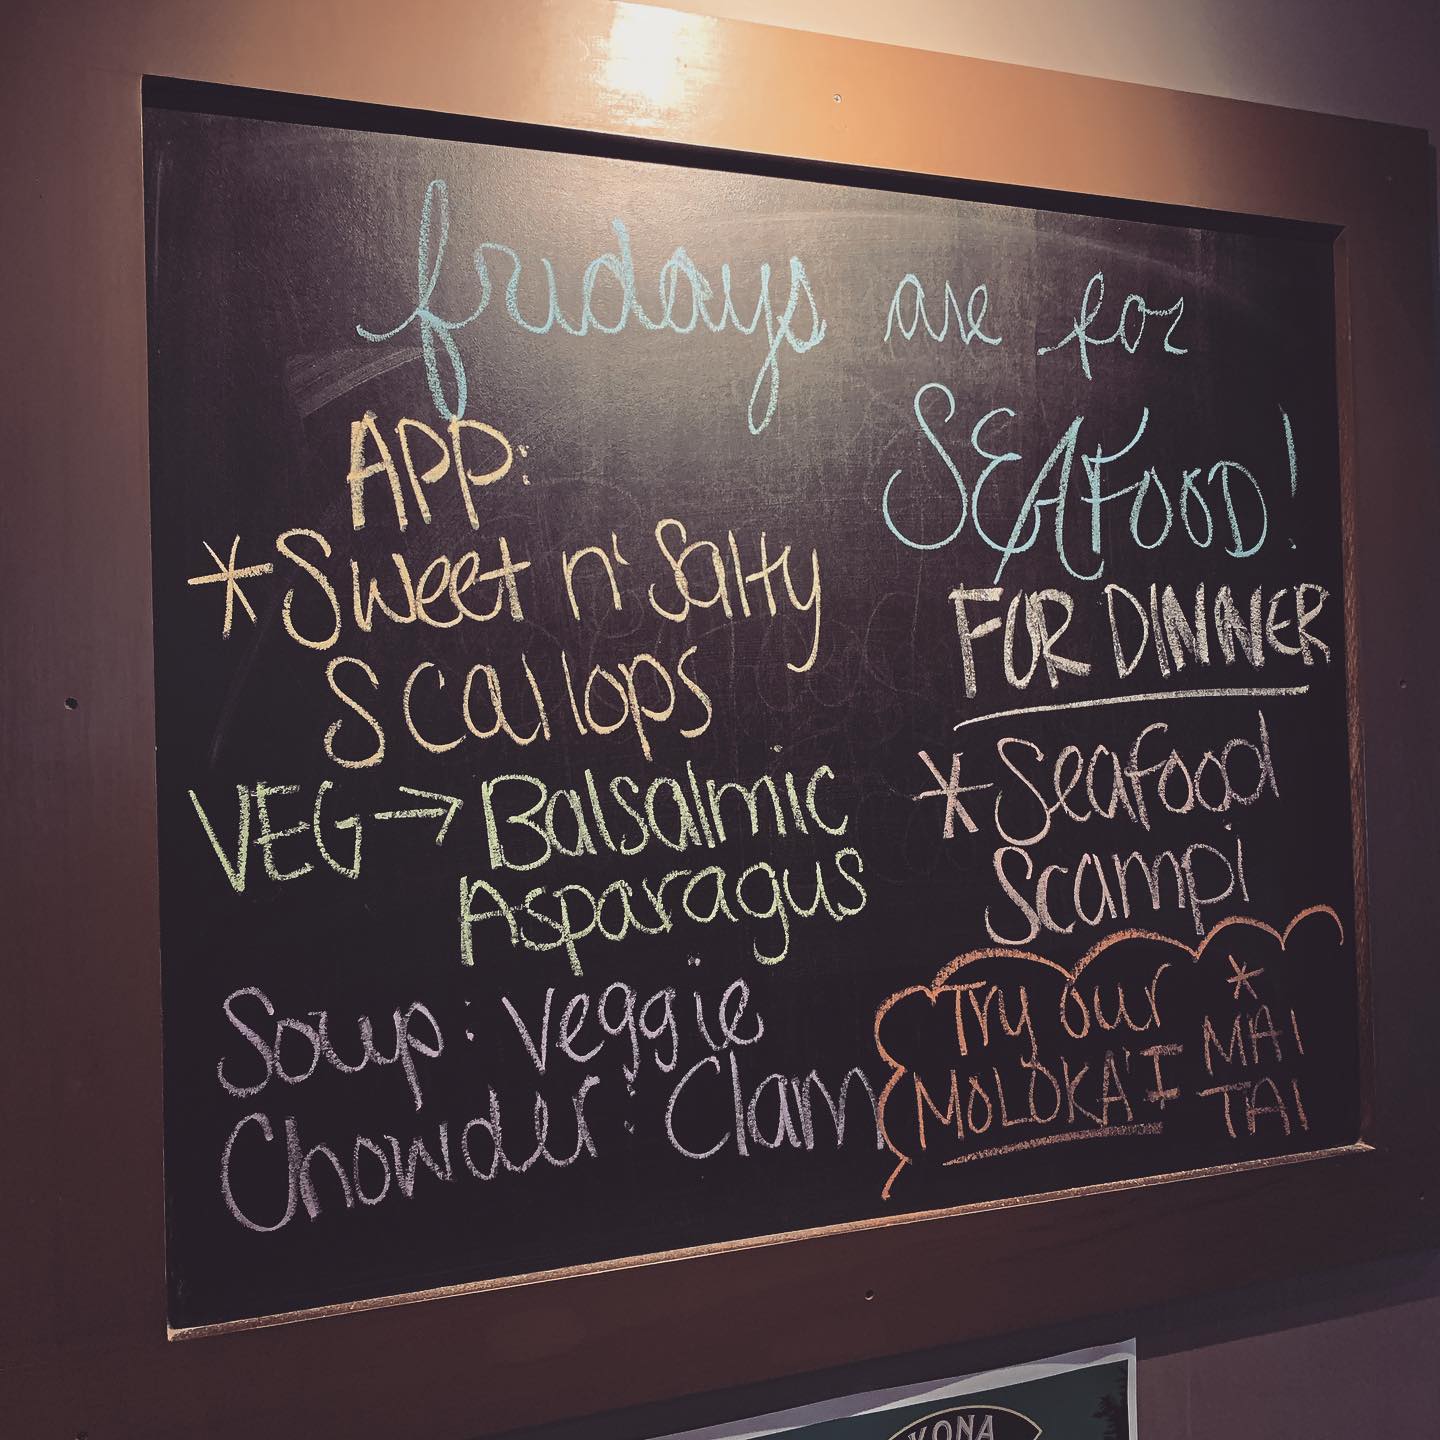 fridays are for
SEAFOOD!
APP:
*Sweet n' Salty
Scallops
VEG→Balsalmic
Asparagus
Soup: Veggie
Chowder: Clam
FOR DINNER
*Seafood
Scampi
Try our *
MOLOKA'I MAI
TAI
KONA